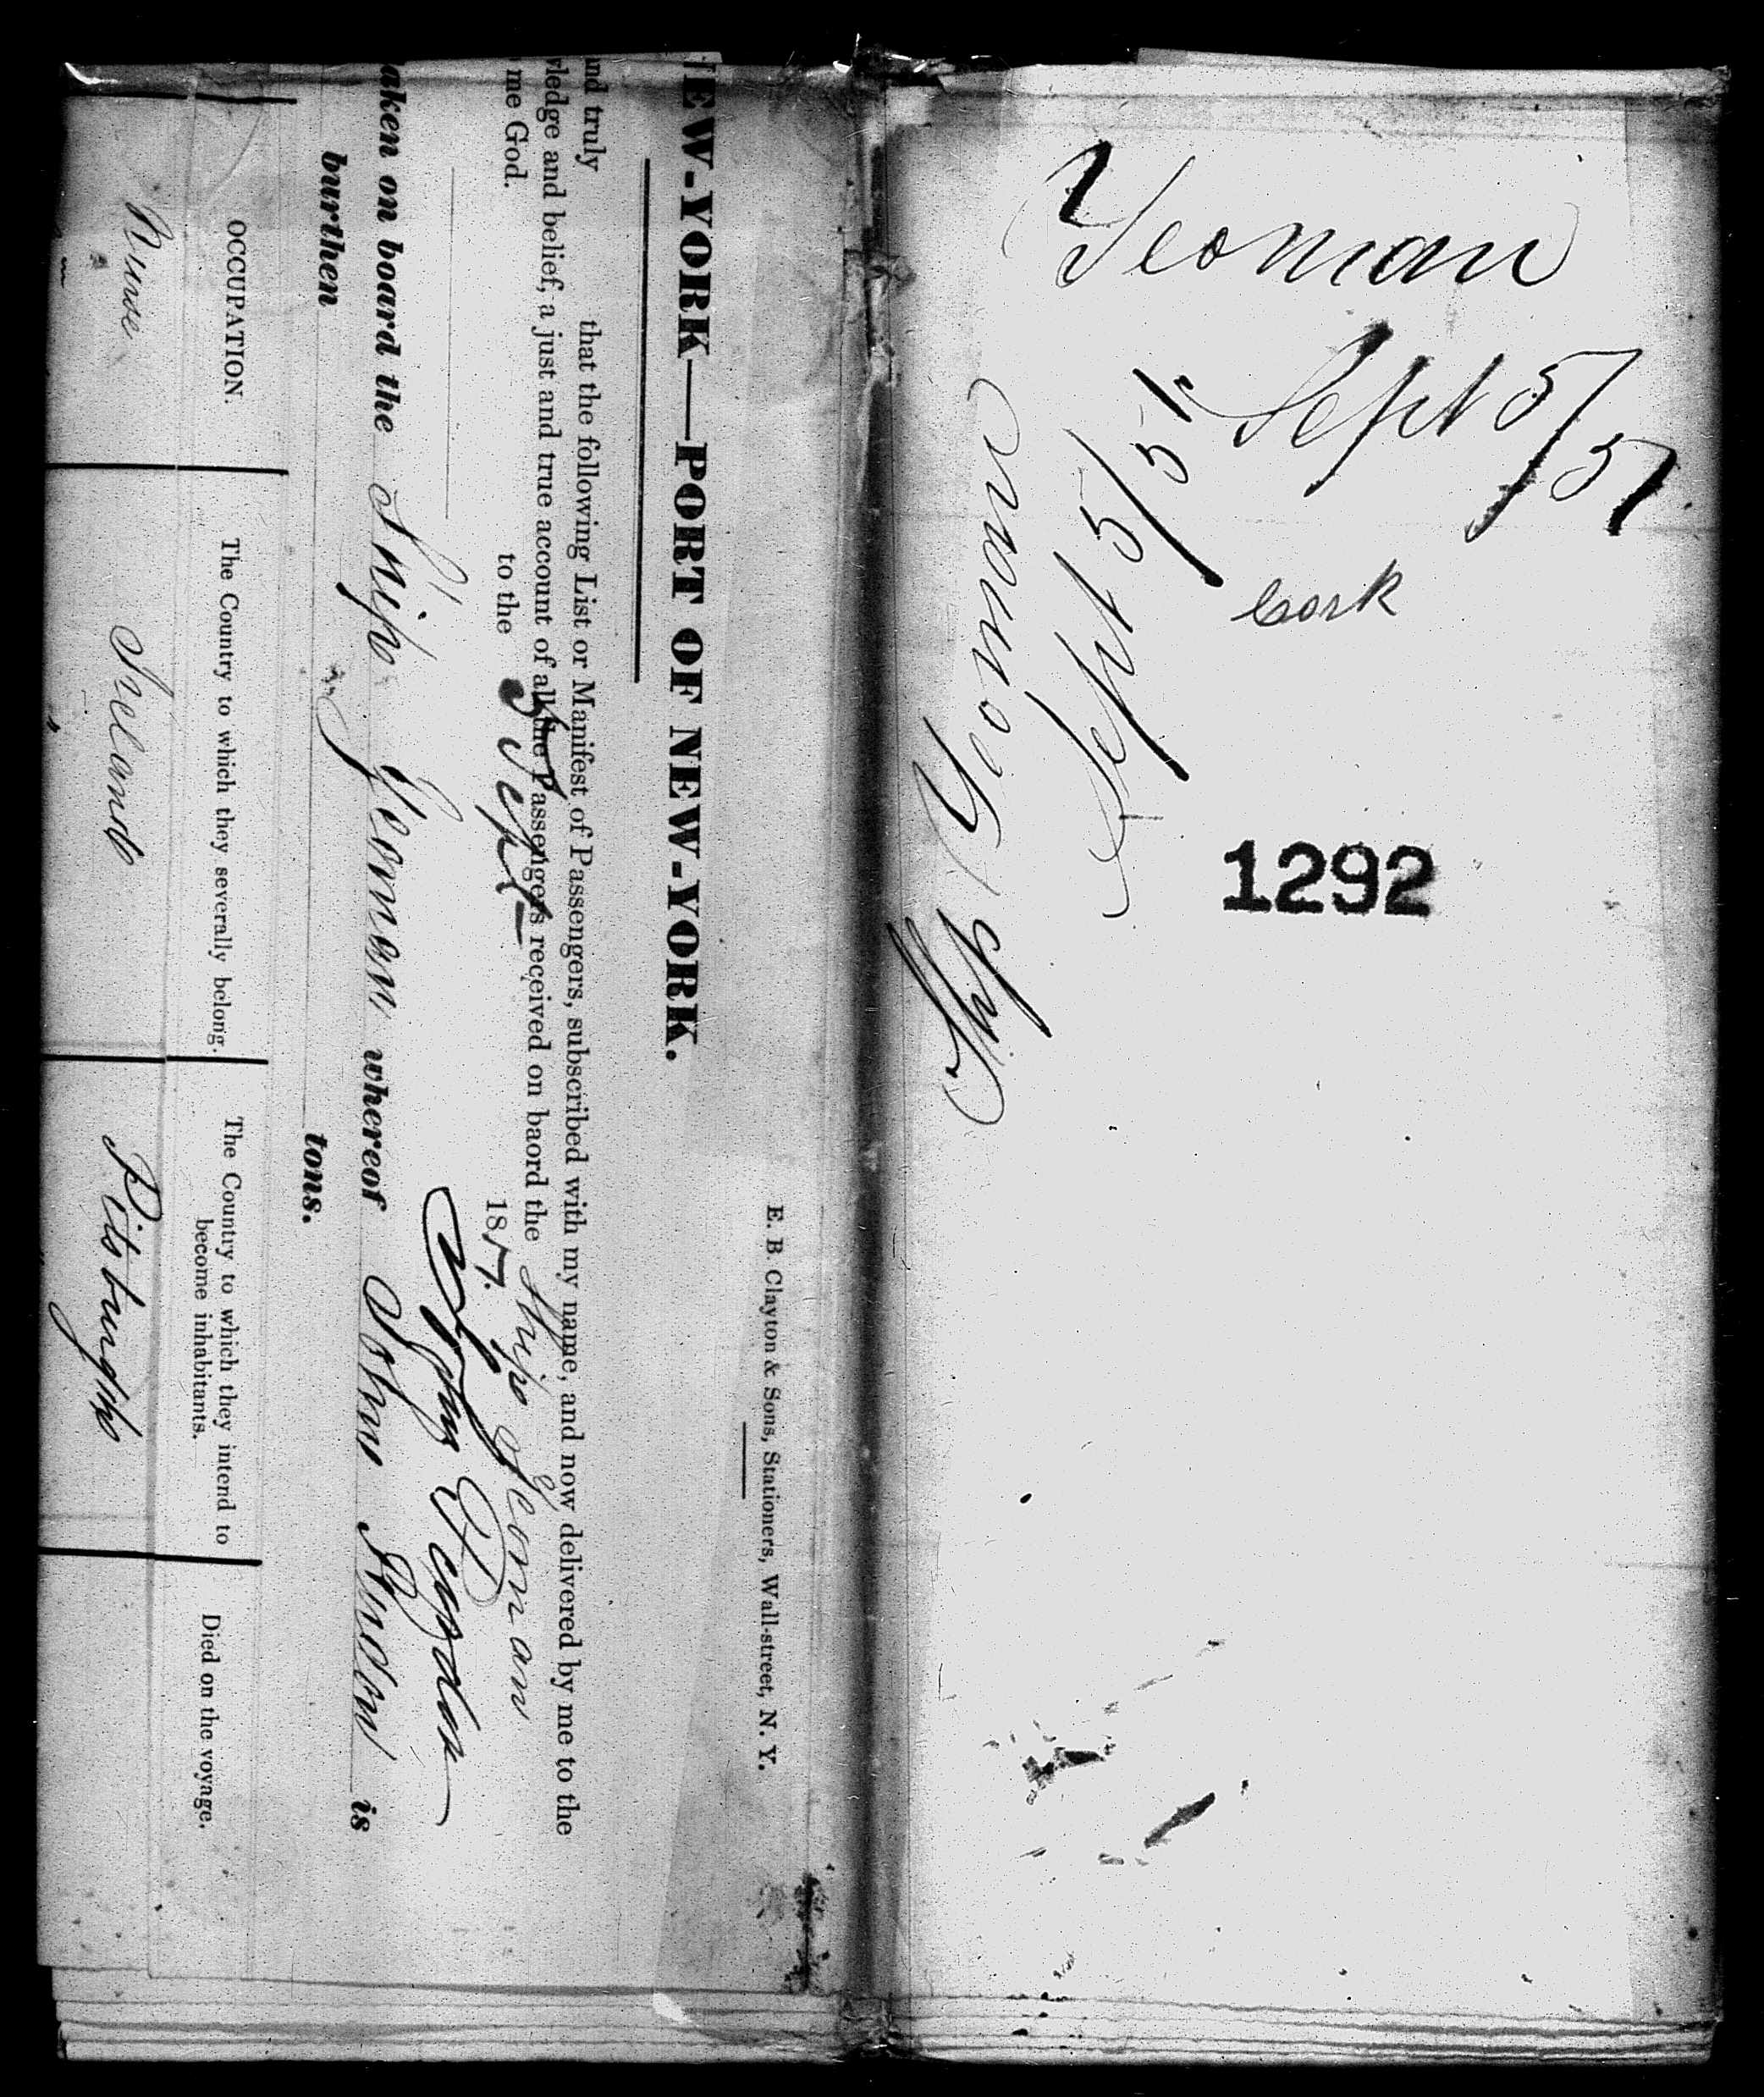 Yeoman
Sept 5/51
Sept 5/51
Cork
Ship Yeoman
1292
E. B. Clayton & Sons, Stationers, Wall-street, N. Y.
NEW-YORK—PORT OF NEW-YORK.
nd truly that the following List or Manifest of Passengers, subscribed with my name, and now delivered by me to the
ledge and belief, a just and true account of all the Passengers received on baord the Ship Yeoman
me God.
to the 5 Sept 18
aken on board the Ship Yeoman whereof John is
burthen tons.
OCCUPATION.
The Country to which they severally belong.
The Country to which they intend to
become inhabitants.
Died on the voyage.
Nurse Ireland Pitsburgth